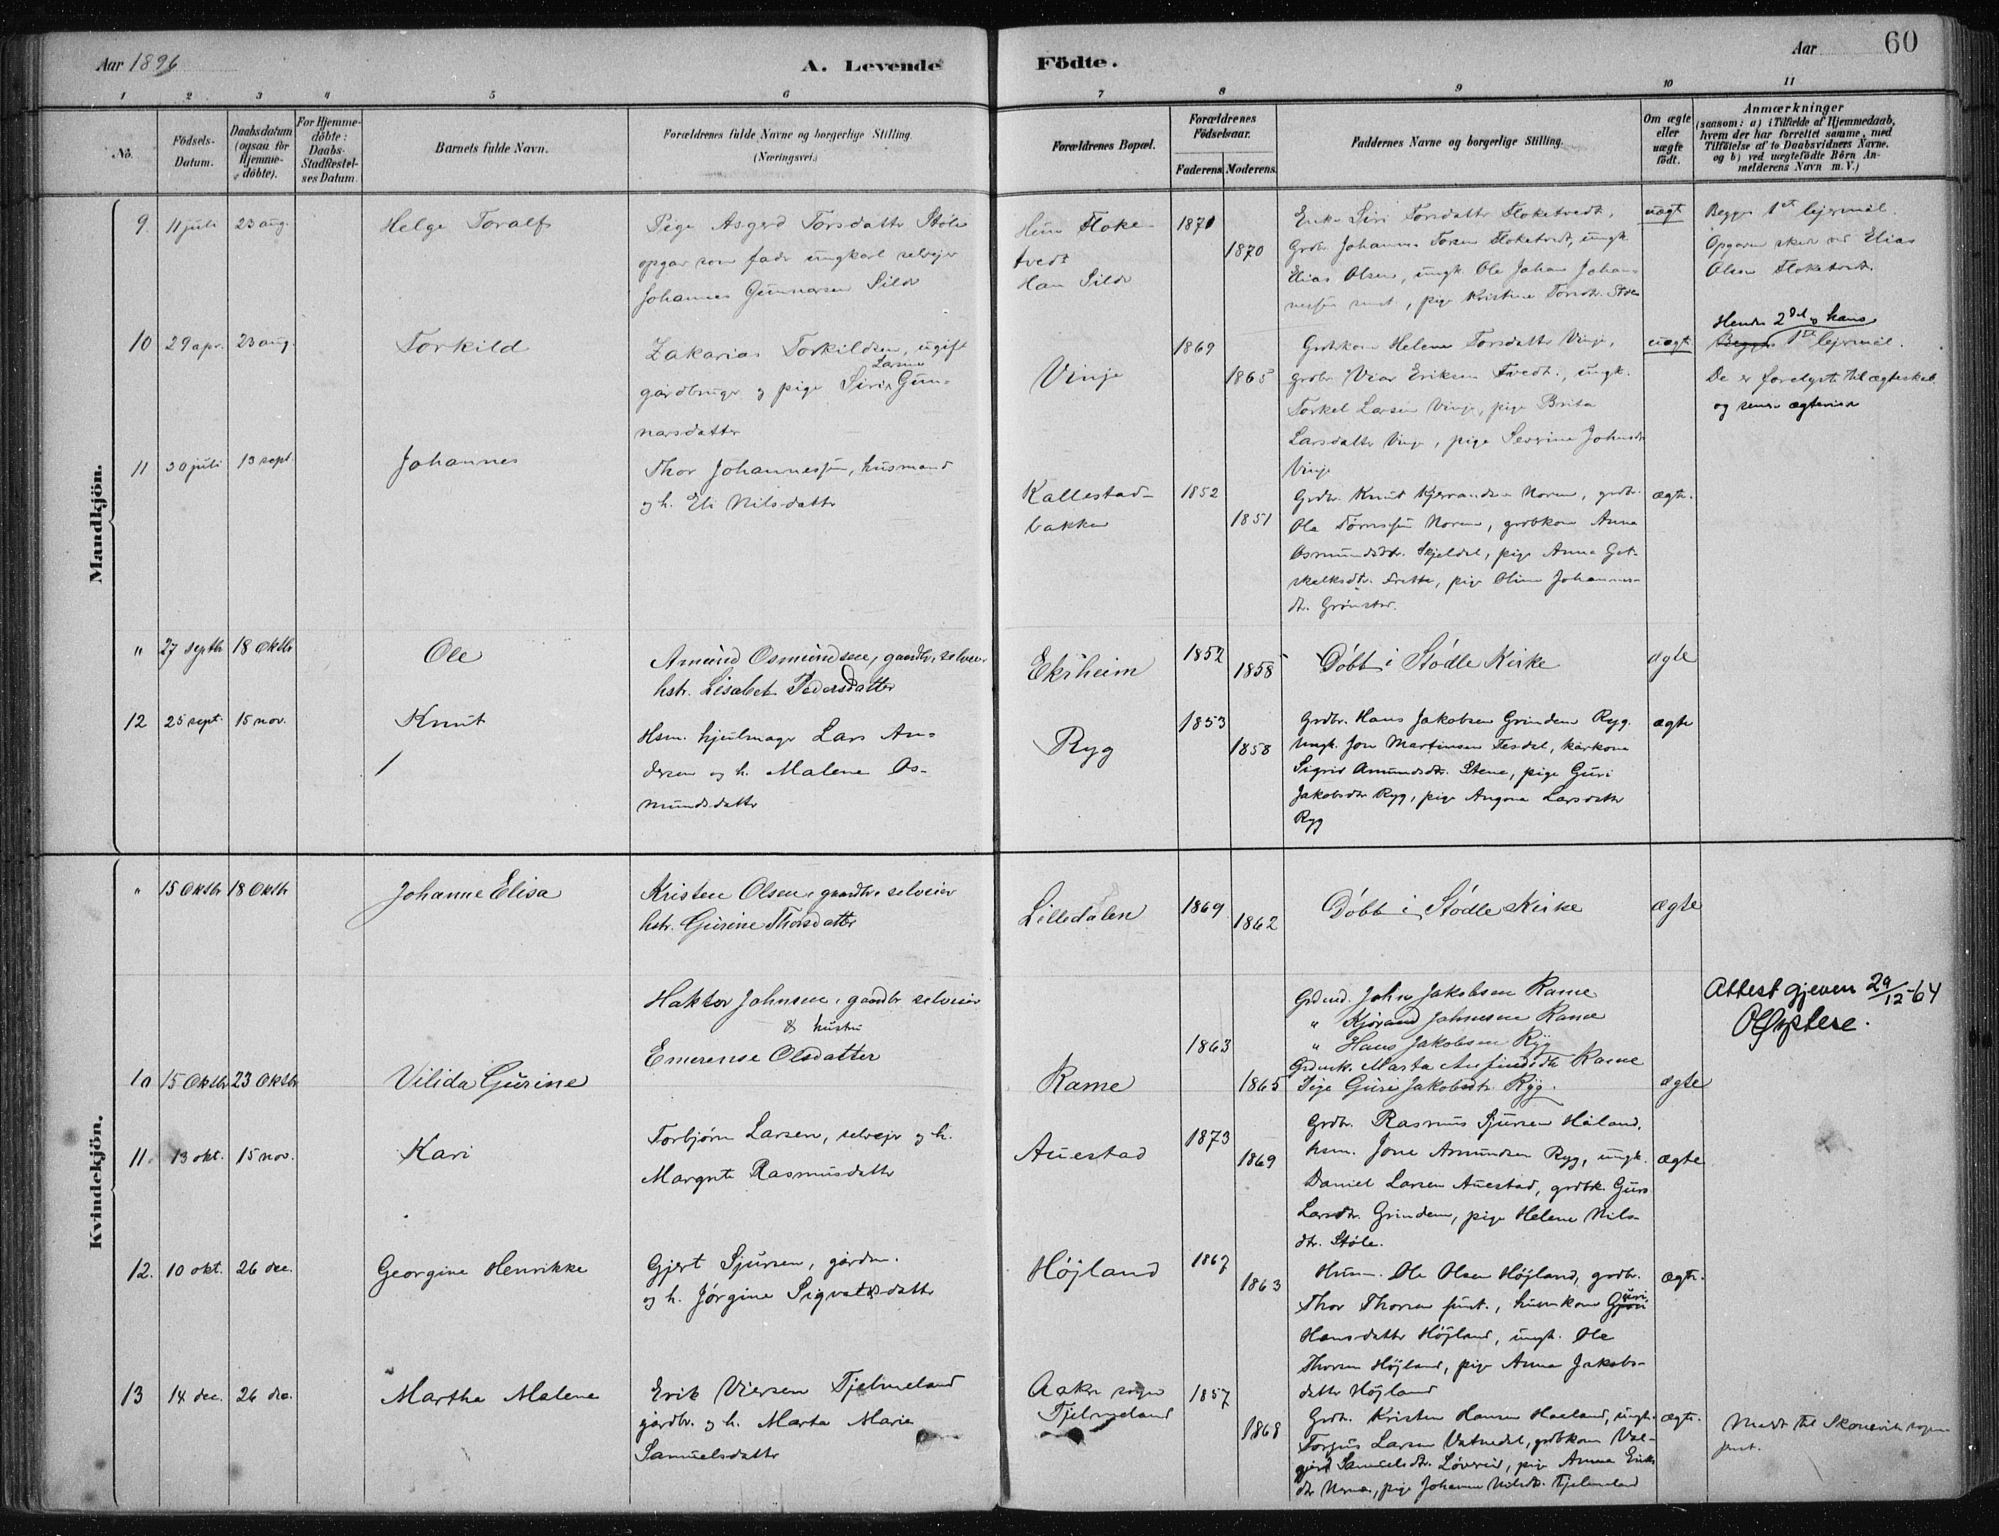 Aar 1896
A. Levende
Födte.
Aar
60
1 2 3 4 5 6 7 8 9 10 11
No.
Födsels-
Datum.
Daabsdatum
(ogsaa for
Hjemme-
döbte).
For Hjemme-
döbte:
Daabs-
Stadfæstel-
ses Datum.
Barnets fulde Navn.
Forældrenes fulde Navne og borgerlige Stilling.
(Næringsvei.)
Forældrenes Bopæl.
Forældrenes
Födselsaar.
Faderens.
Moderens.
Faddernes Navne og borgerlige Stilling.
Om ægte
eller
uægte
födt.
Anmærkninger
(saasom: a) i Tilfælde af Hjemmedaab,
hvem der har forrettet samme, med
Tilföielse af to Daabsvidners Navne.
og b) ved uægtefödte Börn An-
melderens Navn m. V.)
Mandkjön.
9 11 juli 23 aug. Helge Toralf
Pige Asgerd Torsdatter Støle
opgav som fader ungkarl selvejer
Johannes Gunnarsen Silde
Hun Floke-
tvedt
Han Silde
1870
1870
Enke Siri Torsdatter Floketvedt,
Grdbr. Johannes Torsen Floketvedt, ungk.
Elias Olsen, ungk. Ole Johan Johan-
nessen smst., pige Kristine Torsdtr. Støle
uægt
Begges 1ste lejermål.
Opgaven skede ved Elias
Olsen Floketvedt.
10 29 apr. 23 aug. Torkild
Zakarias Torkildsen, ugift
gårdbruger og pige Siri Larsine Gun-
narsdatter
Vinje
1869
1865
Grdbkone Helene Torsdatter Vinje,
grdbr. Viar Eriksen Tvedt, ungk.
Torkel Larsen Vinje, pige Brita
Larsdatter Vinje, pige Severine Johnsdtr
Vinje
uægt.
Hendes 2det og hans
Begges 1ste lejermål.
De er forelyste til ægteskab
og senere ægteviede
11 30 juli 13 sept. Johannes
Thor Johannessen, husmand
og h. Eli Nilsdatter
Kallestad-
bakken
1852
1851
Grdbr. Knut Kjerrandsen Norem, grdbr.
Ole Tørrissen Norem, grdbkone Anna
Osmundsdtr. Skjeldal, pige Anna Got-
skalksdtr. Frette, pige Oline Johannes-
dtr. Grønstad.
ægte.
" 27 septbr 18 Oktbr Ole
Amund Osmundsen, gaardbr. selveier
hstr. Lisabet Pedersdatter
Eksheim
1852
1858
Döbt i Stödle Kirke
ægte
12 25 sept. 15 nov. Knut
Hsm. hjulmager Lars An-
dersen og h. Malene Os-
mundsdatter
Ryg
1853
1858
Grdbr. Hans Jakobsen Grindem Ryg.
Ungk. Jon Martinsen Tesdal, kårkone
Sigrid Amundsdtr. Stene, pige Guri
Jakobsdtr Ryg, pige Angora Larsdatter
Ryg
ægte
Kvindekjön.
" 15 Oktbr 18 Oktbr Johanne Elisa
Kristen Olsen, gaardbr. selveier
hstr. Gurine Thorsdatter
Lilledalen
1869
1862
Döbt i Stödle Kirke
ægte
10 15 Oktbr 23 Oktbr Vilida Gurine
Haktor Johnsen, gaardbr. selveier
& hustru
Emerense Olsdatter
Rame
1863
1865
Grdmd. John Jakobsen Rame
" Kjørand Johnsen Rame
" Hans Jakobsen Ryg
Grdmk. Marta Anfindsdtr Rame
Pige Guri Jakobsdtr. Ryg.
ægte
Attest gjeven 29/12-64
11 13 okt. 15 nov. Kari
Torbjørn Larsen, selvejer og h.
Margrete Rasmusdatter
Auestad
1873
1869
Grdbr. Rasmus Sjursen Håland,
hsm. Jone Amundsen Ryg, ungk.
Daniel Larsen Auestad, grdbk. Guri
Larsdtr. Grindem, pige Helene Nils-
dtr. Støle.
ægte
12. 10 okt. 26 dec. Georgine Henrikke
Gjert Sjursen, gårdm.
og h. Jørgine Sigvaldsdatter
Højland
1867
1863
Husm. Ole Olsen Højland, grdbr.
Thor Thorsen smst., huskone Guri
Hansdatter Højland, ungk. Ole
Thorsen Højland, pige Anna Jakobs-
datter Højland
ægte.
13 14 dec. 26 dec. Martha Malene
Erik Viersen Tjelmeland
gårdbr. og h. Marta Marie
Samuelsdatter
Aakre sogn
Tjelmeland
1857
1868
Grdbr. Kristen Hansen Haaland, ungk.
Torjus Larsen Vatnedal, grdbkone Val-
gjerd Samuelsdtr. Løvereid, pige Anna Eriks
dtr Nernæs, pige Johanne Nilsdtr. Tjelmeland
ægte.
Meldt til Skonevik sogne-
prest.